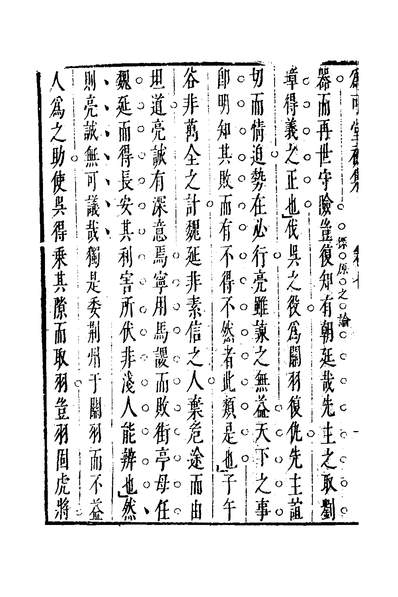 為可堂初集　卷十
器而再世守險豈復知有朝廷哉先主之取劉
探原之論
璋得義之正也伐吳之役為關羽復仇先主誼
切而情迫勢在必行亮雖諫之無益天下之事
即明知其敗而有不得不然者此類是也子午
谷非萬全之計魏延非素信之人棄危途而由
坦道亮誠有深意焉寧用馬謖而敗街亭毋任
魏延而得長安其利害所伏非淺人能辨也然
則亮誠無可議哉獨是委荊州于關羽而不益
人為之助使吳得乘其隙而取羽豈羽固虎將